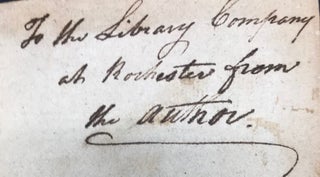 To the Library Company
at Rochester from
the author.